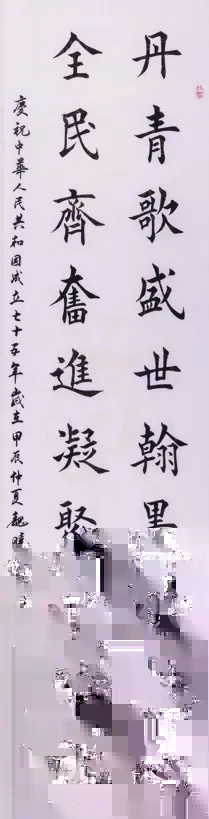 丹青歌盛世翰墨
全民齊奮進凝聚
慶祝中華人民共和國成立七十五年歲在甲辰仲夏魏晴